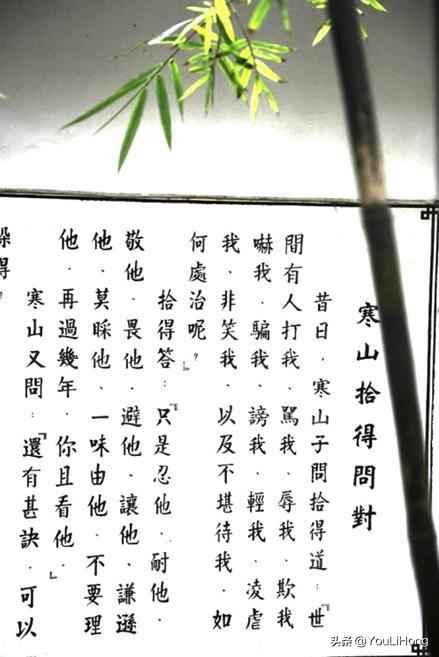 寒山拾得問對
昔日，寒山子問拾得道：『世
間有人打我、罵我、辱我、欺我
嚇我、騙我、謗我、輕我、凌虐
我、非笑我、以及不堪待我、如
何處治呢？』
拾得答：『只是忍他、耐他、
敬他、畏他、避他、讓他、謙遜
他、莫睬他、一味由他、不要理
他、再過幾年、你且看他。』
寒山又問：『還有甚訣、可以
躲得
头条 @YouLiHong